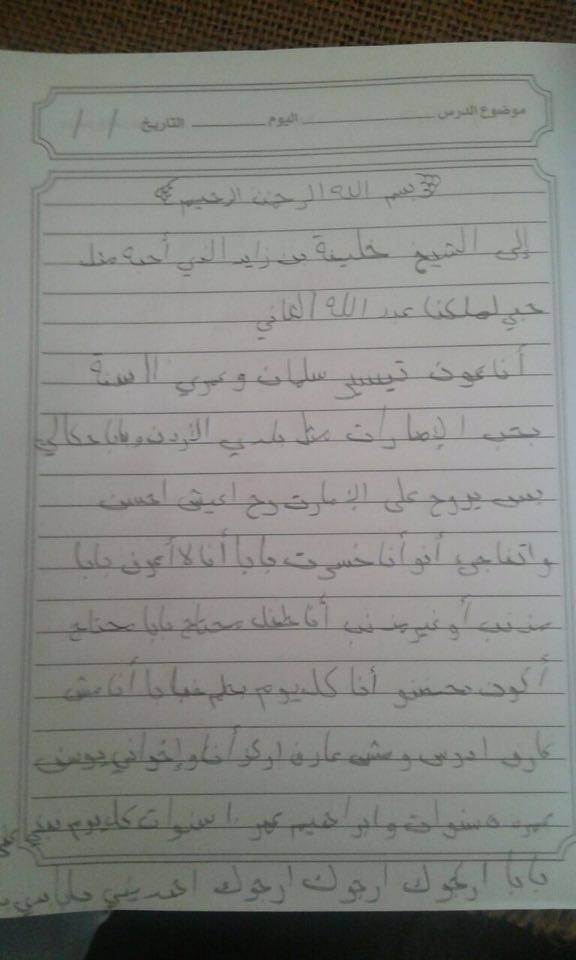 موضوع الدرس اليوم التاريخ / /
بسم الله الرحمن الرحيم
إلى الشيخ خليفة بن زايد الذي أحبه مثل
حبي لملكنا عبد الله الثاني
أنا عون تيسير سلمان وعمري السنة
بحب الإمارات مثل بلدي الأردن وبابا حكالي
بس يروح على الإمارت رح اعيش احسن
واتفاجئ أنو أنا خسرت بابا أنا لا أعرف بابا
مذنب أو غير مذنب أنا طفل محتاج بابا محتاج
أكون بحضنو أنا كل يوم بحلم فبابا أنا مش
عارف ادرس ومش عارف اركز أنا وإخواني يوسف
عمره 5 سنوات وابراهيم عمر 10 سنوات كل يوم نبكي
بابا ارجوك ارجوك ارجوك